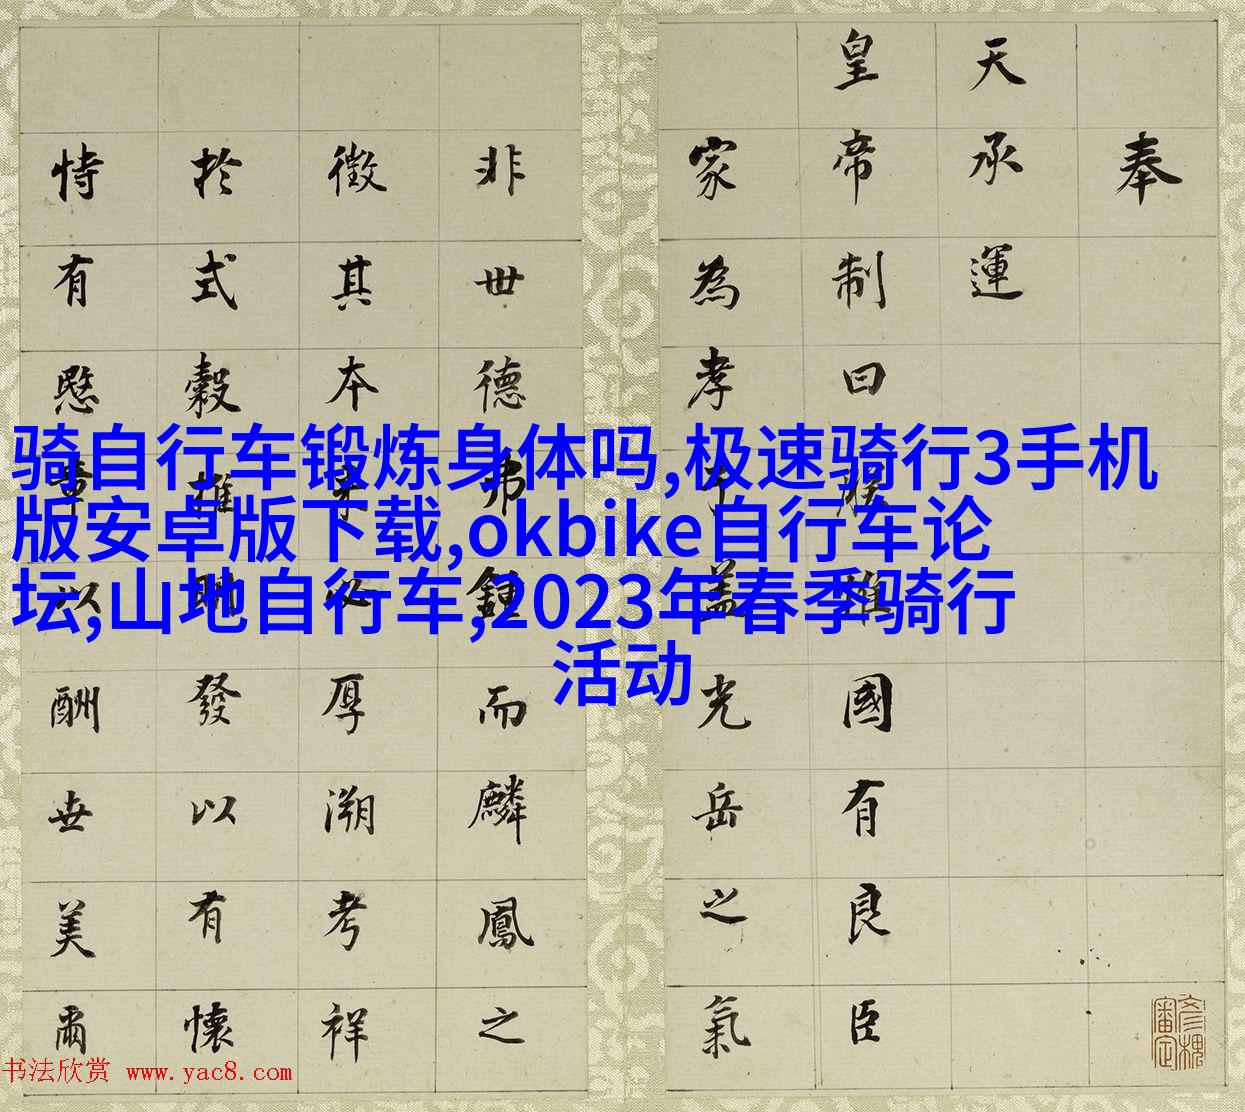 奉
天承運
皇帝制曰朕惟國有良臣
家為孝子蓋光岳之氣
非世德弗鍾而麟鳳之
徵其本必厚溯考祥
於式穀推發以有懷
恃有愍章以酬世美爾
骑自行车锻炼身体吗,极速骑行3手机
版安卓版下载,okbike自行车论
坛,山地自行车,2023年春季骑行
活动
书法欣赏 www.yac8.com